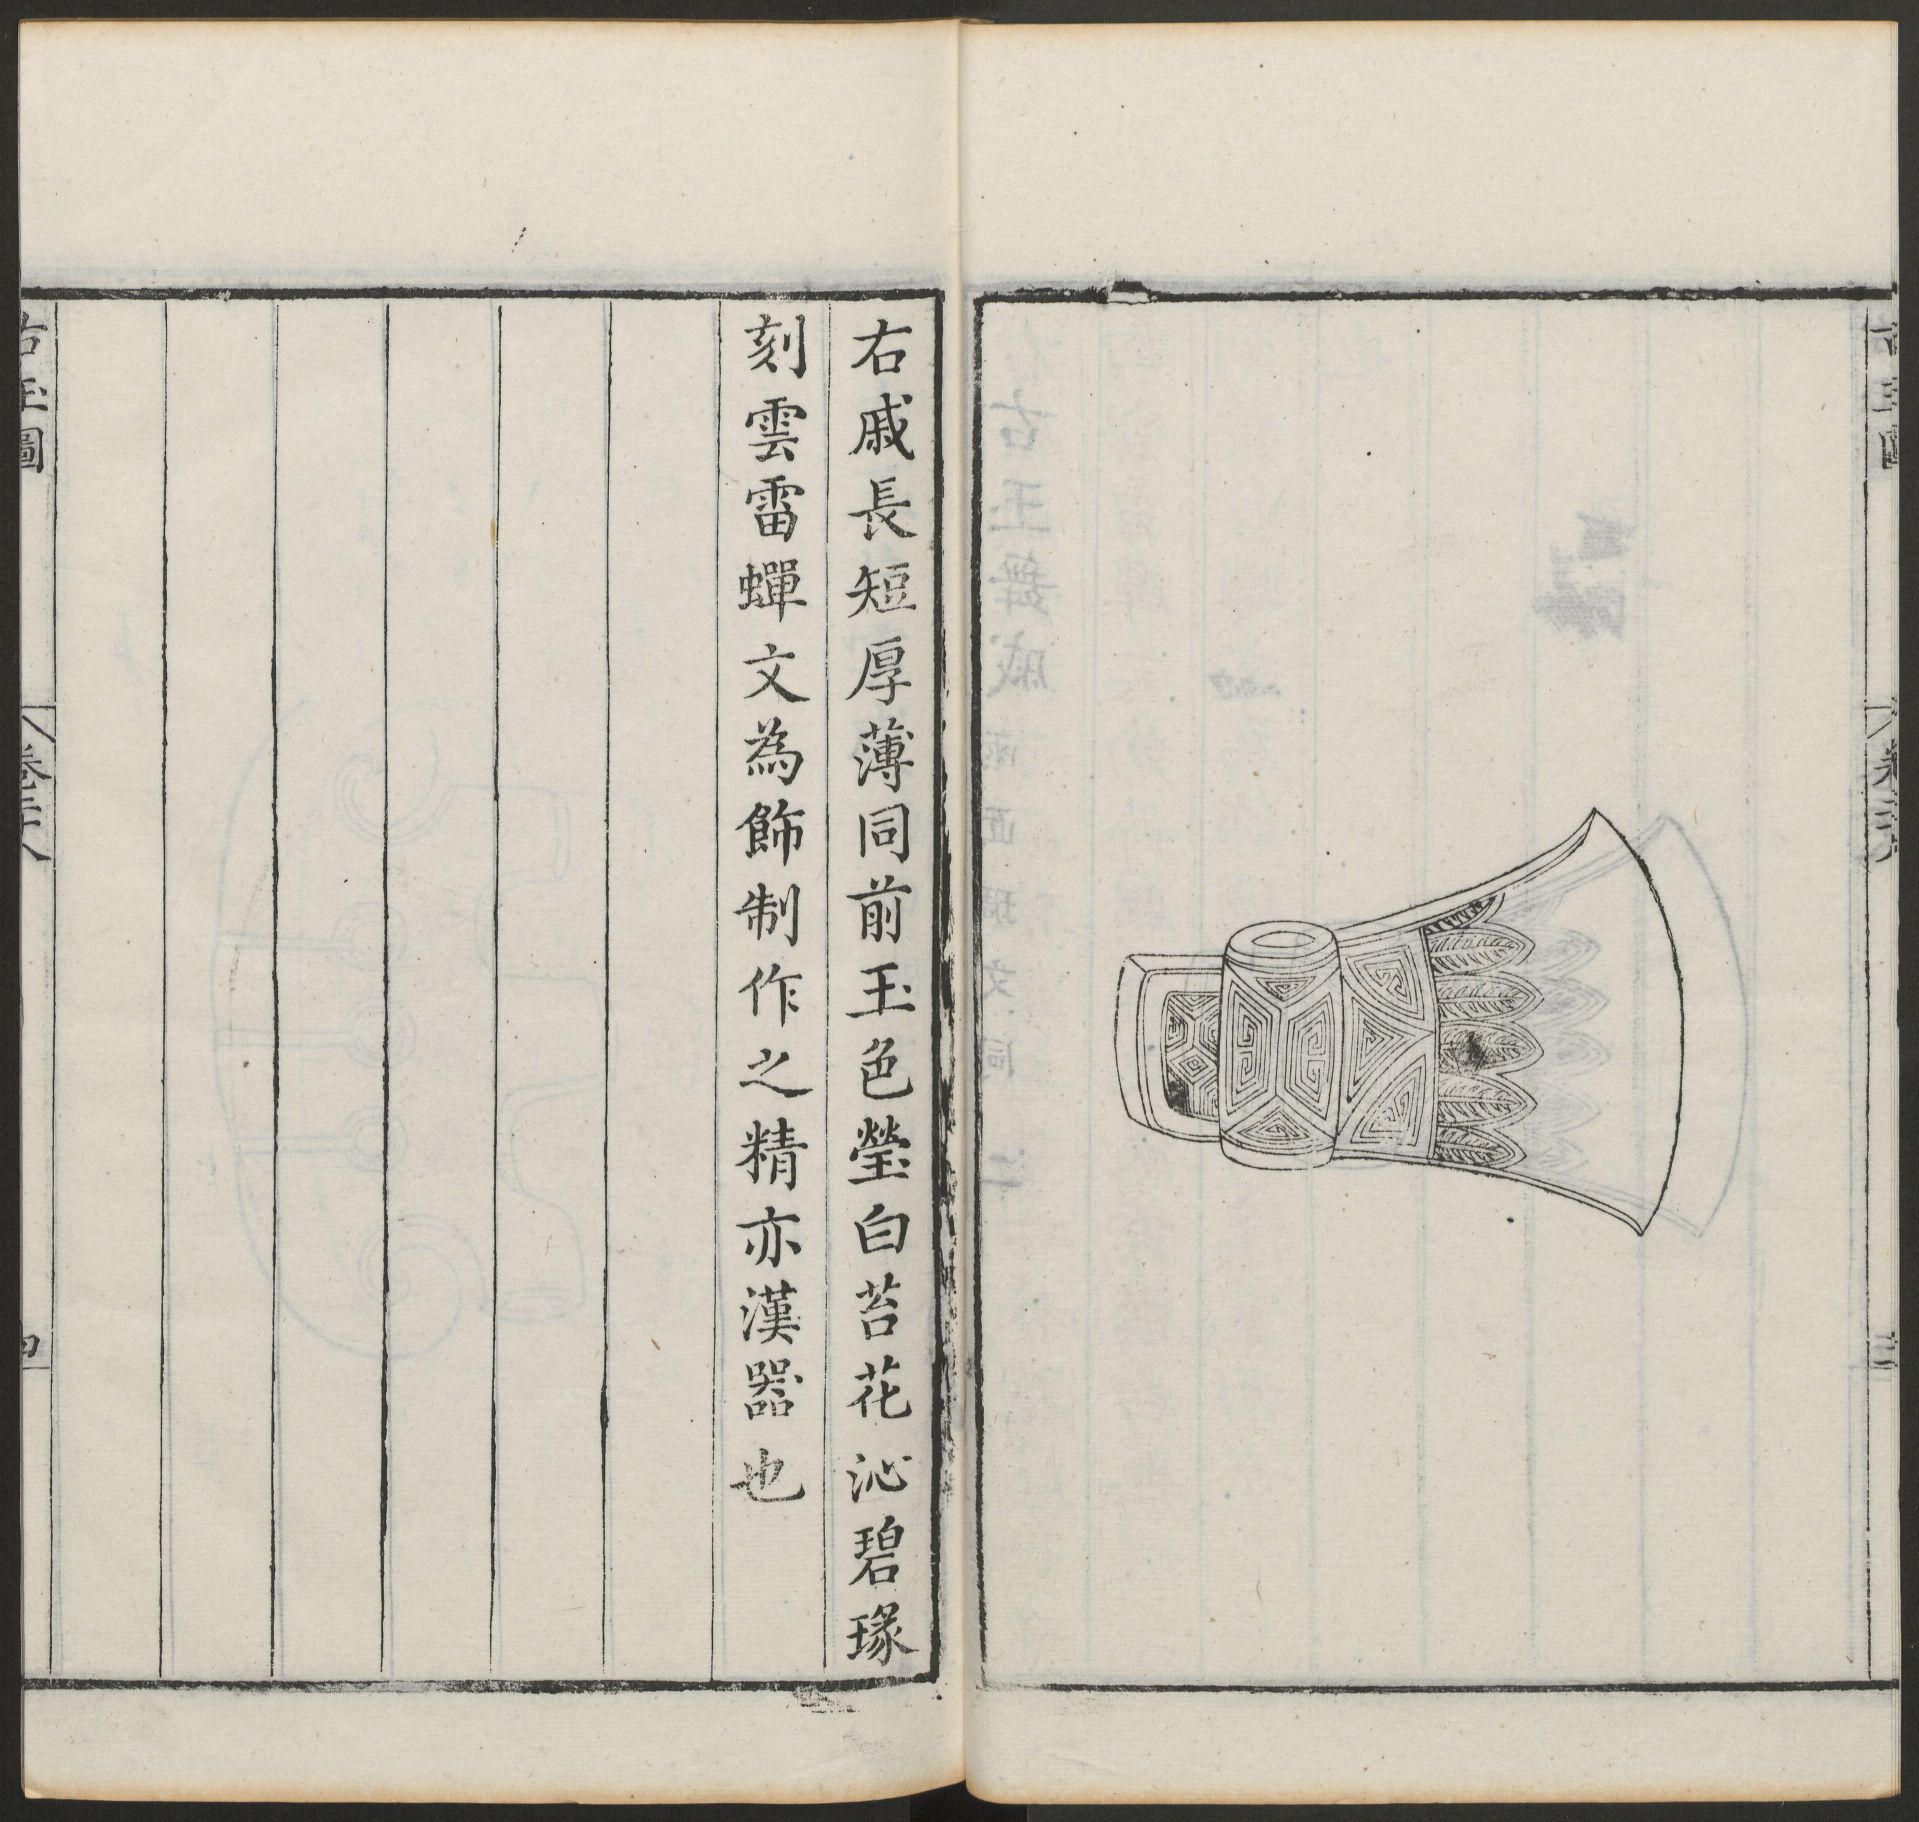 右戚長短厚薄同前玉色瑩白苔花沁碧瑑
刻雲雷蟬文為飾制作之精亦漢器也
古玉圖
卷二十八
四